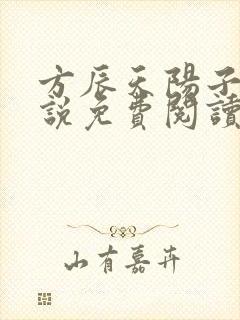 方辰天陽子
說免費閱讀
山有嘉卉